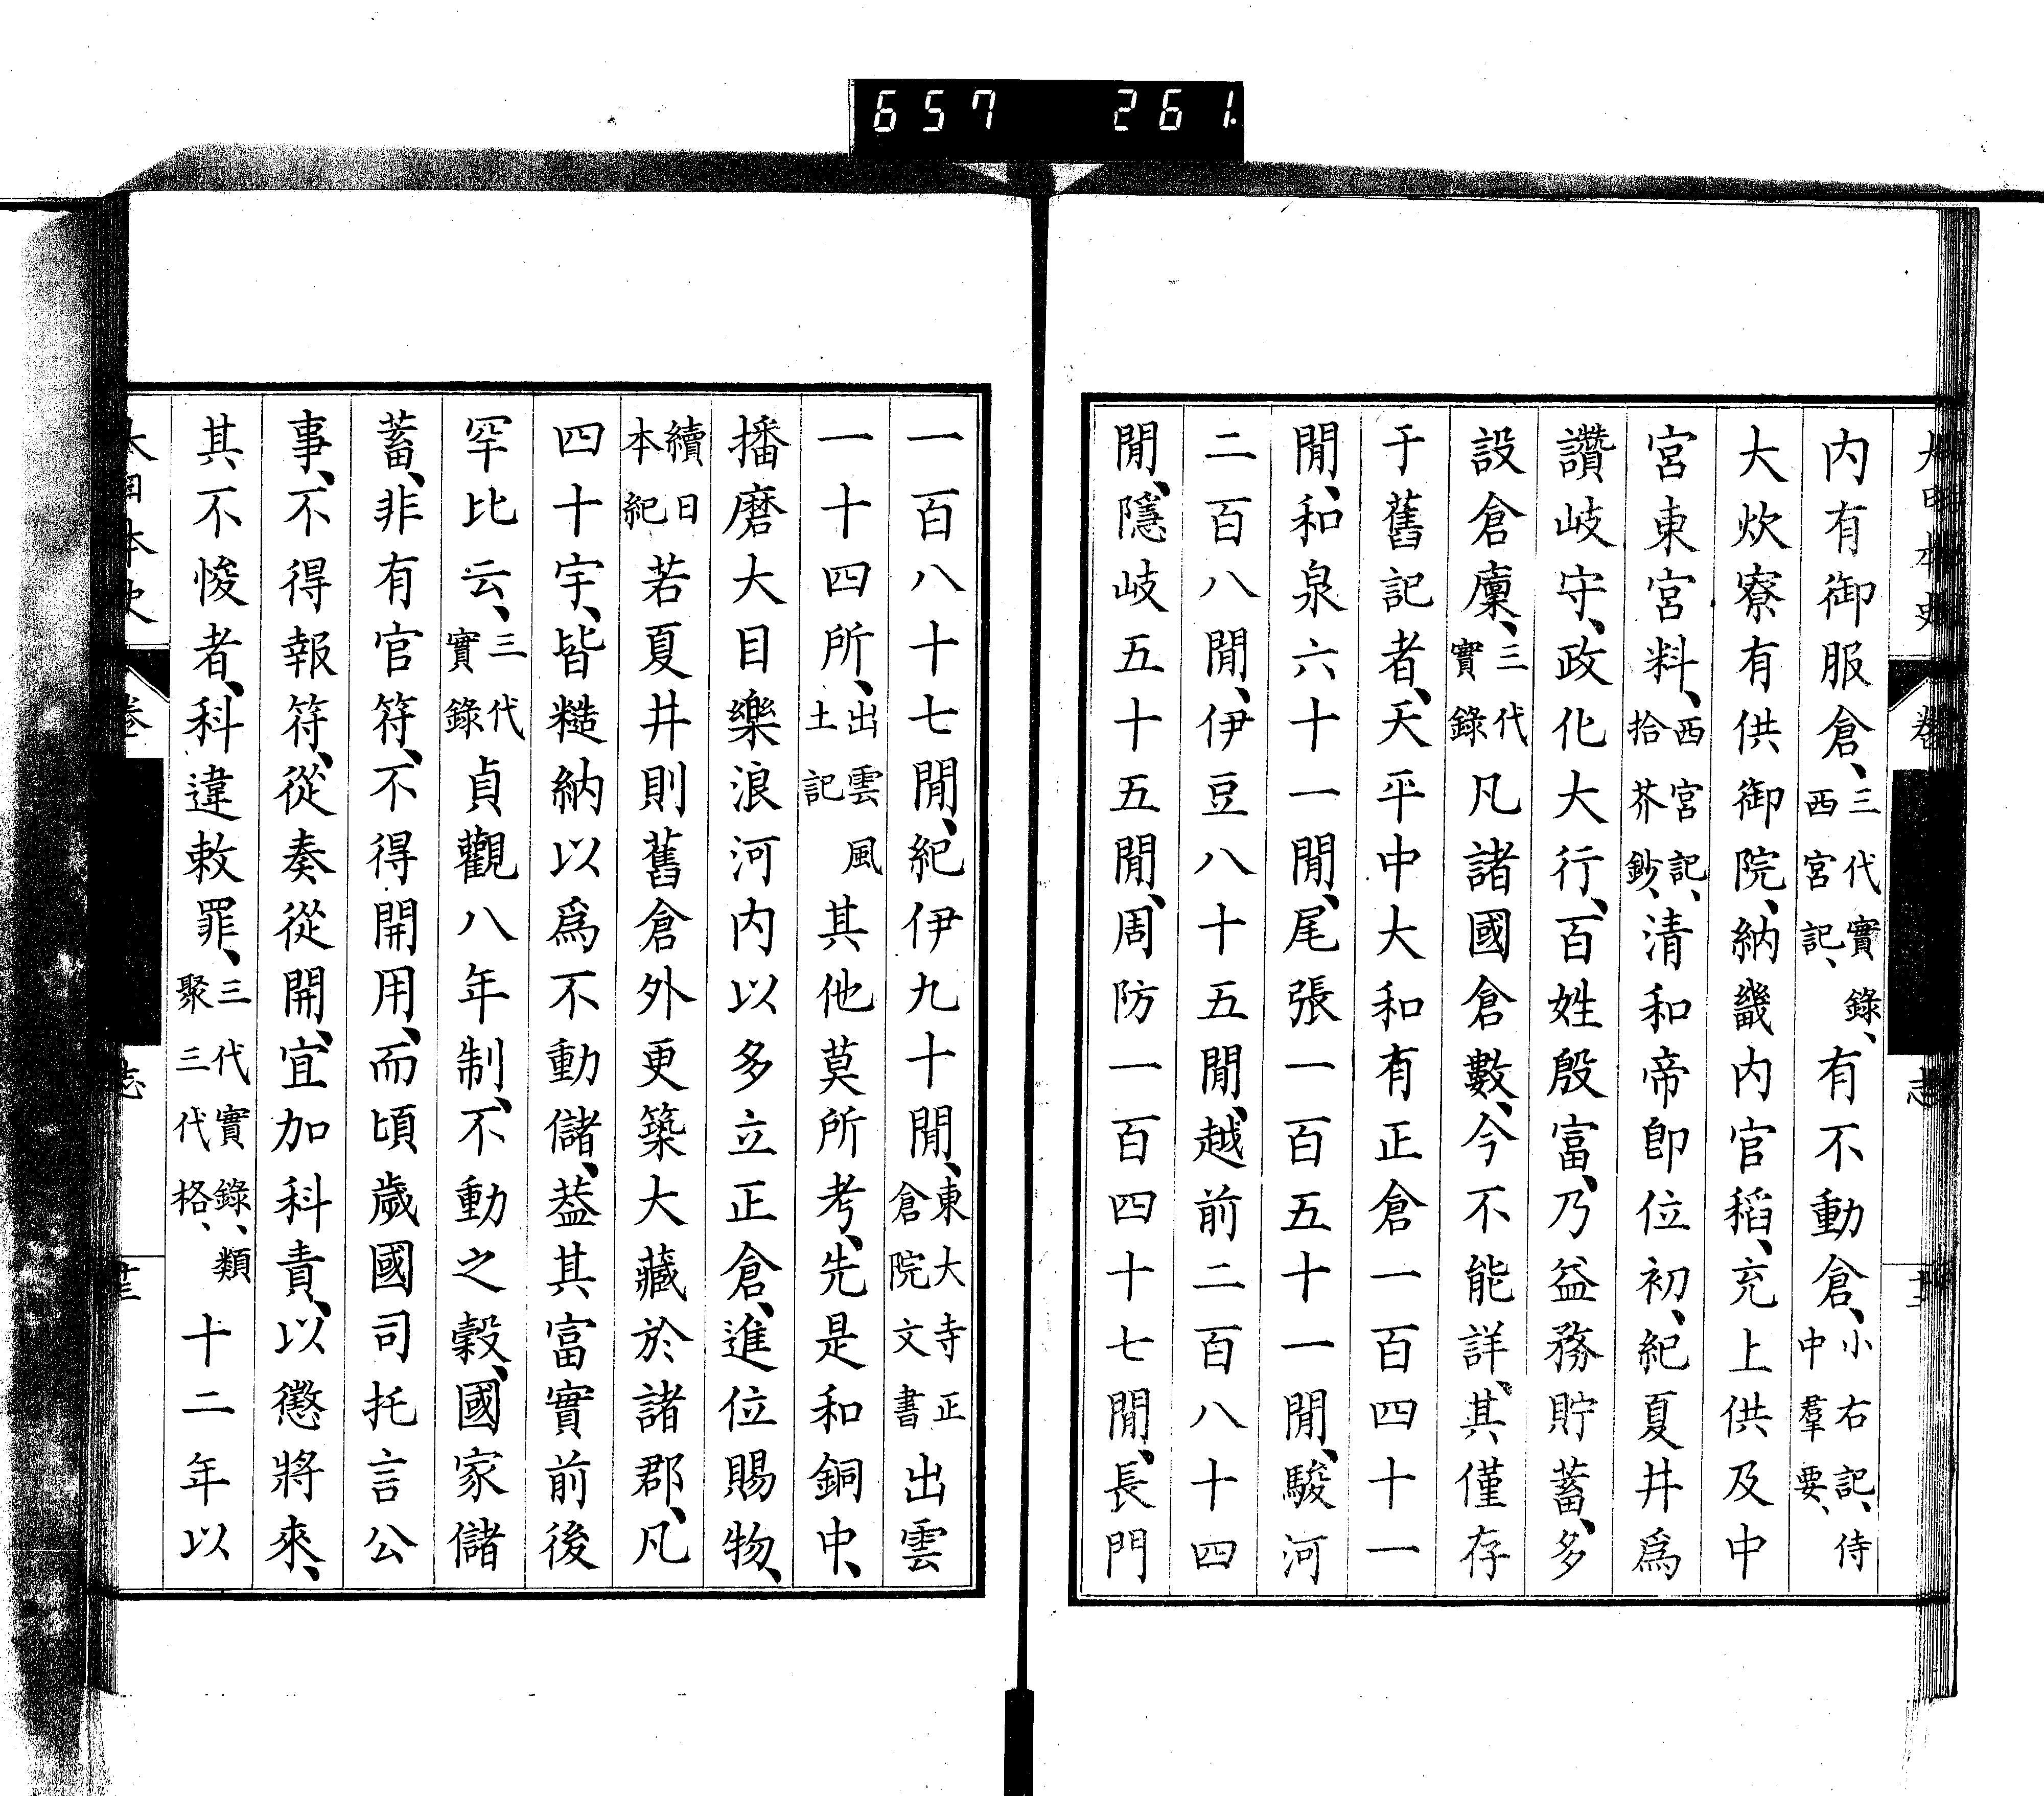 657 261
内有御服倉、三代實錄、西宮記、有不動倉、小右記、侍中羣要、
大炊寮有供御院、納畿内官稻、充上供及中
宮東宮料、西宮記、拾芥鈔、清和帝卽位初、紀夏井爲
讚岐守、政化大行、百姓殷富、乃益務貯蓄、多
設倉廩、三代實錄凡諸國倉數、今不能詳、其僅存
于舊記者、天平中大和有正倉一百四十一
閒、和泉六十一閒、尾張一百五十一閒、駿河
二百八閒、伊豆八十五閒、越前二百八十四
閒、隱岐五十五閒、周防一百四十七閒、長門
一百八十七閒、紀伊九十閒、東大寺正倉院文書出雲
一十四所、出雲風土記其他莫所考、先是和銅中、
播磨大目樂浪河内以多立正倉、進位賜物、
續日本紀若夏井則舊倉外更築大藏於諸郡、凡
四十宇、皆糙納以爲不動儲、葢其富實前後
罕比云、三代實錄貞觀八年制、不動之穀、國家儲
蓄、非有官符、不得開用、而頃歲國司托言公
事、不得報符、從奏從開、宜加科責、以懲將來、
其不悛者、科違敕罪、三代實錄、類聚三代格、十二年以
大日本史 卷 志